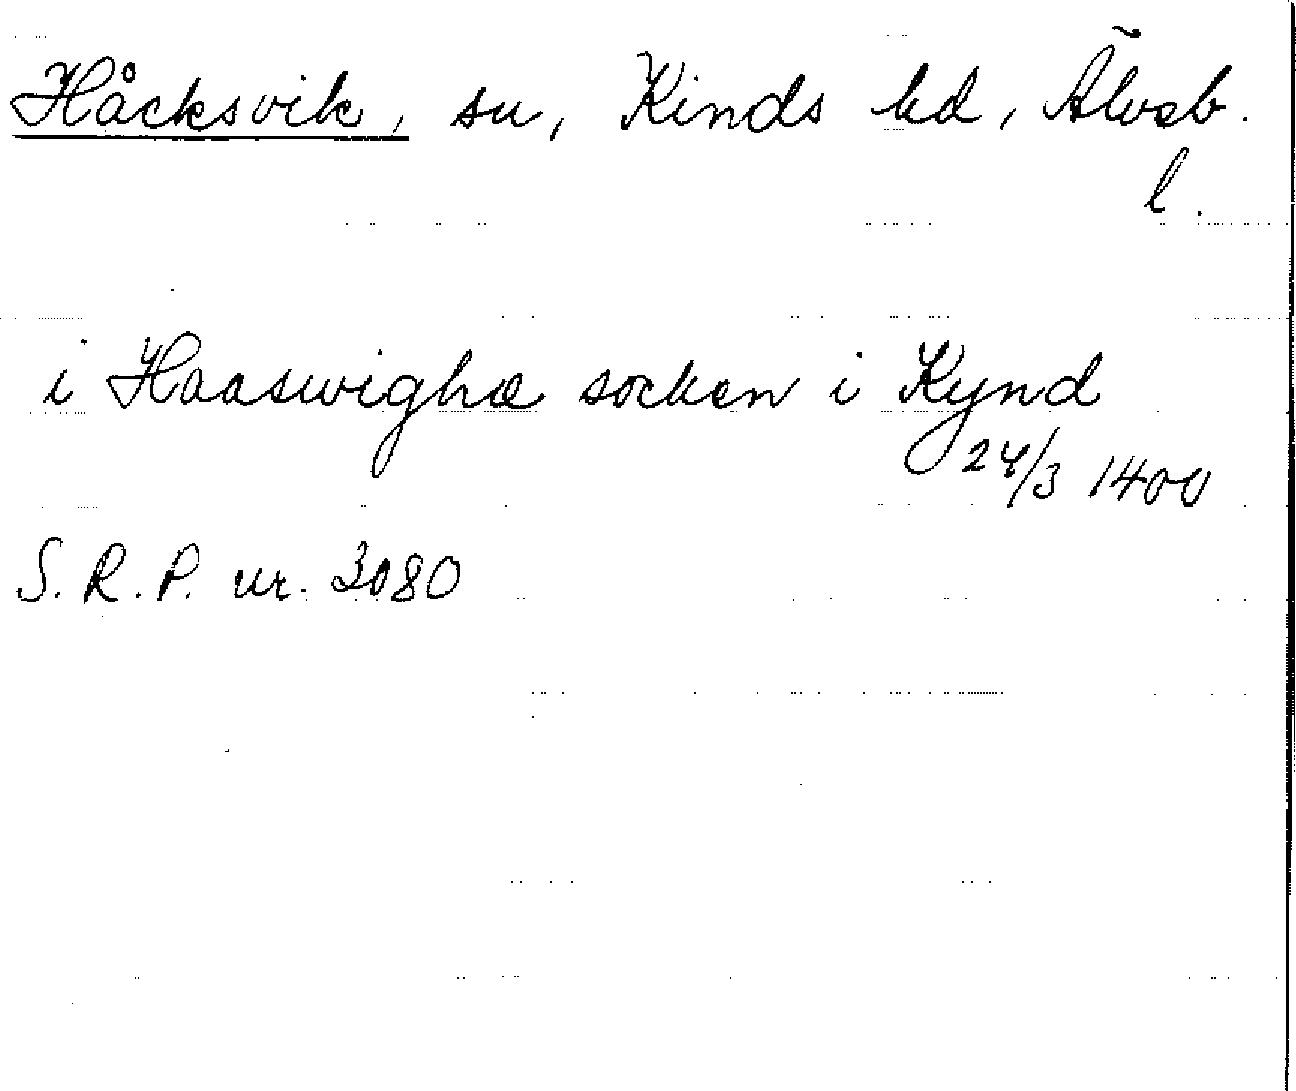 Håcksvik, sn, Kinds hd, Älvsb.
l.
i Haaswighæ socken i Kynd
24/3 1400
S. R. P. nr. 3080